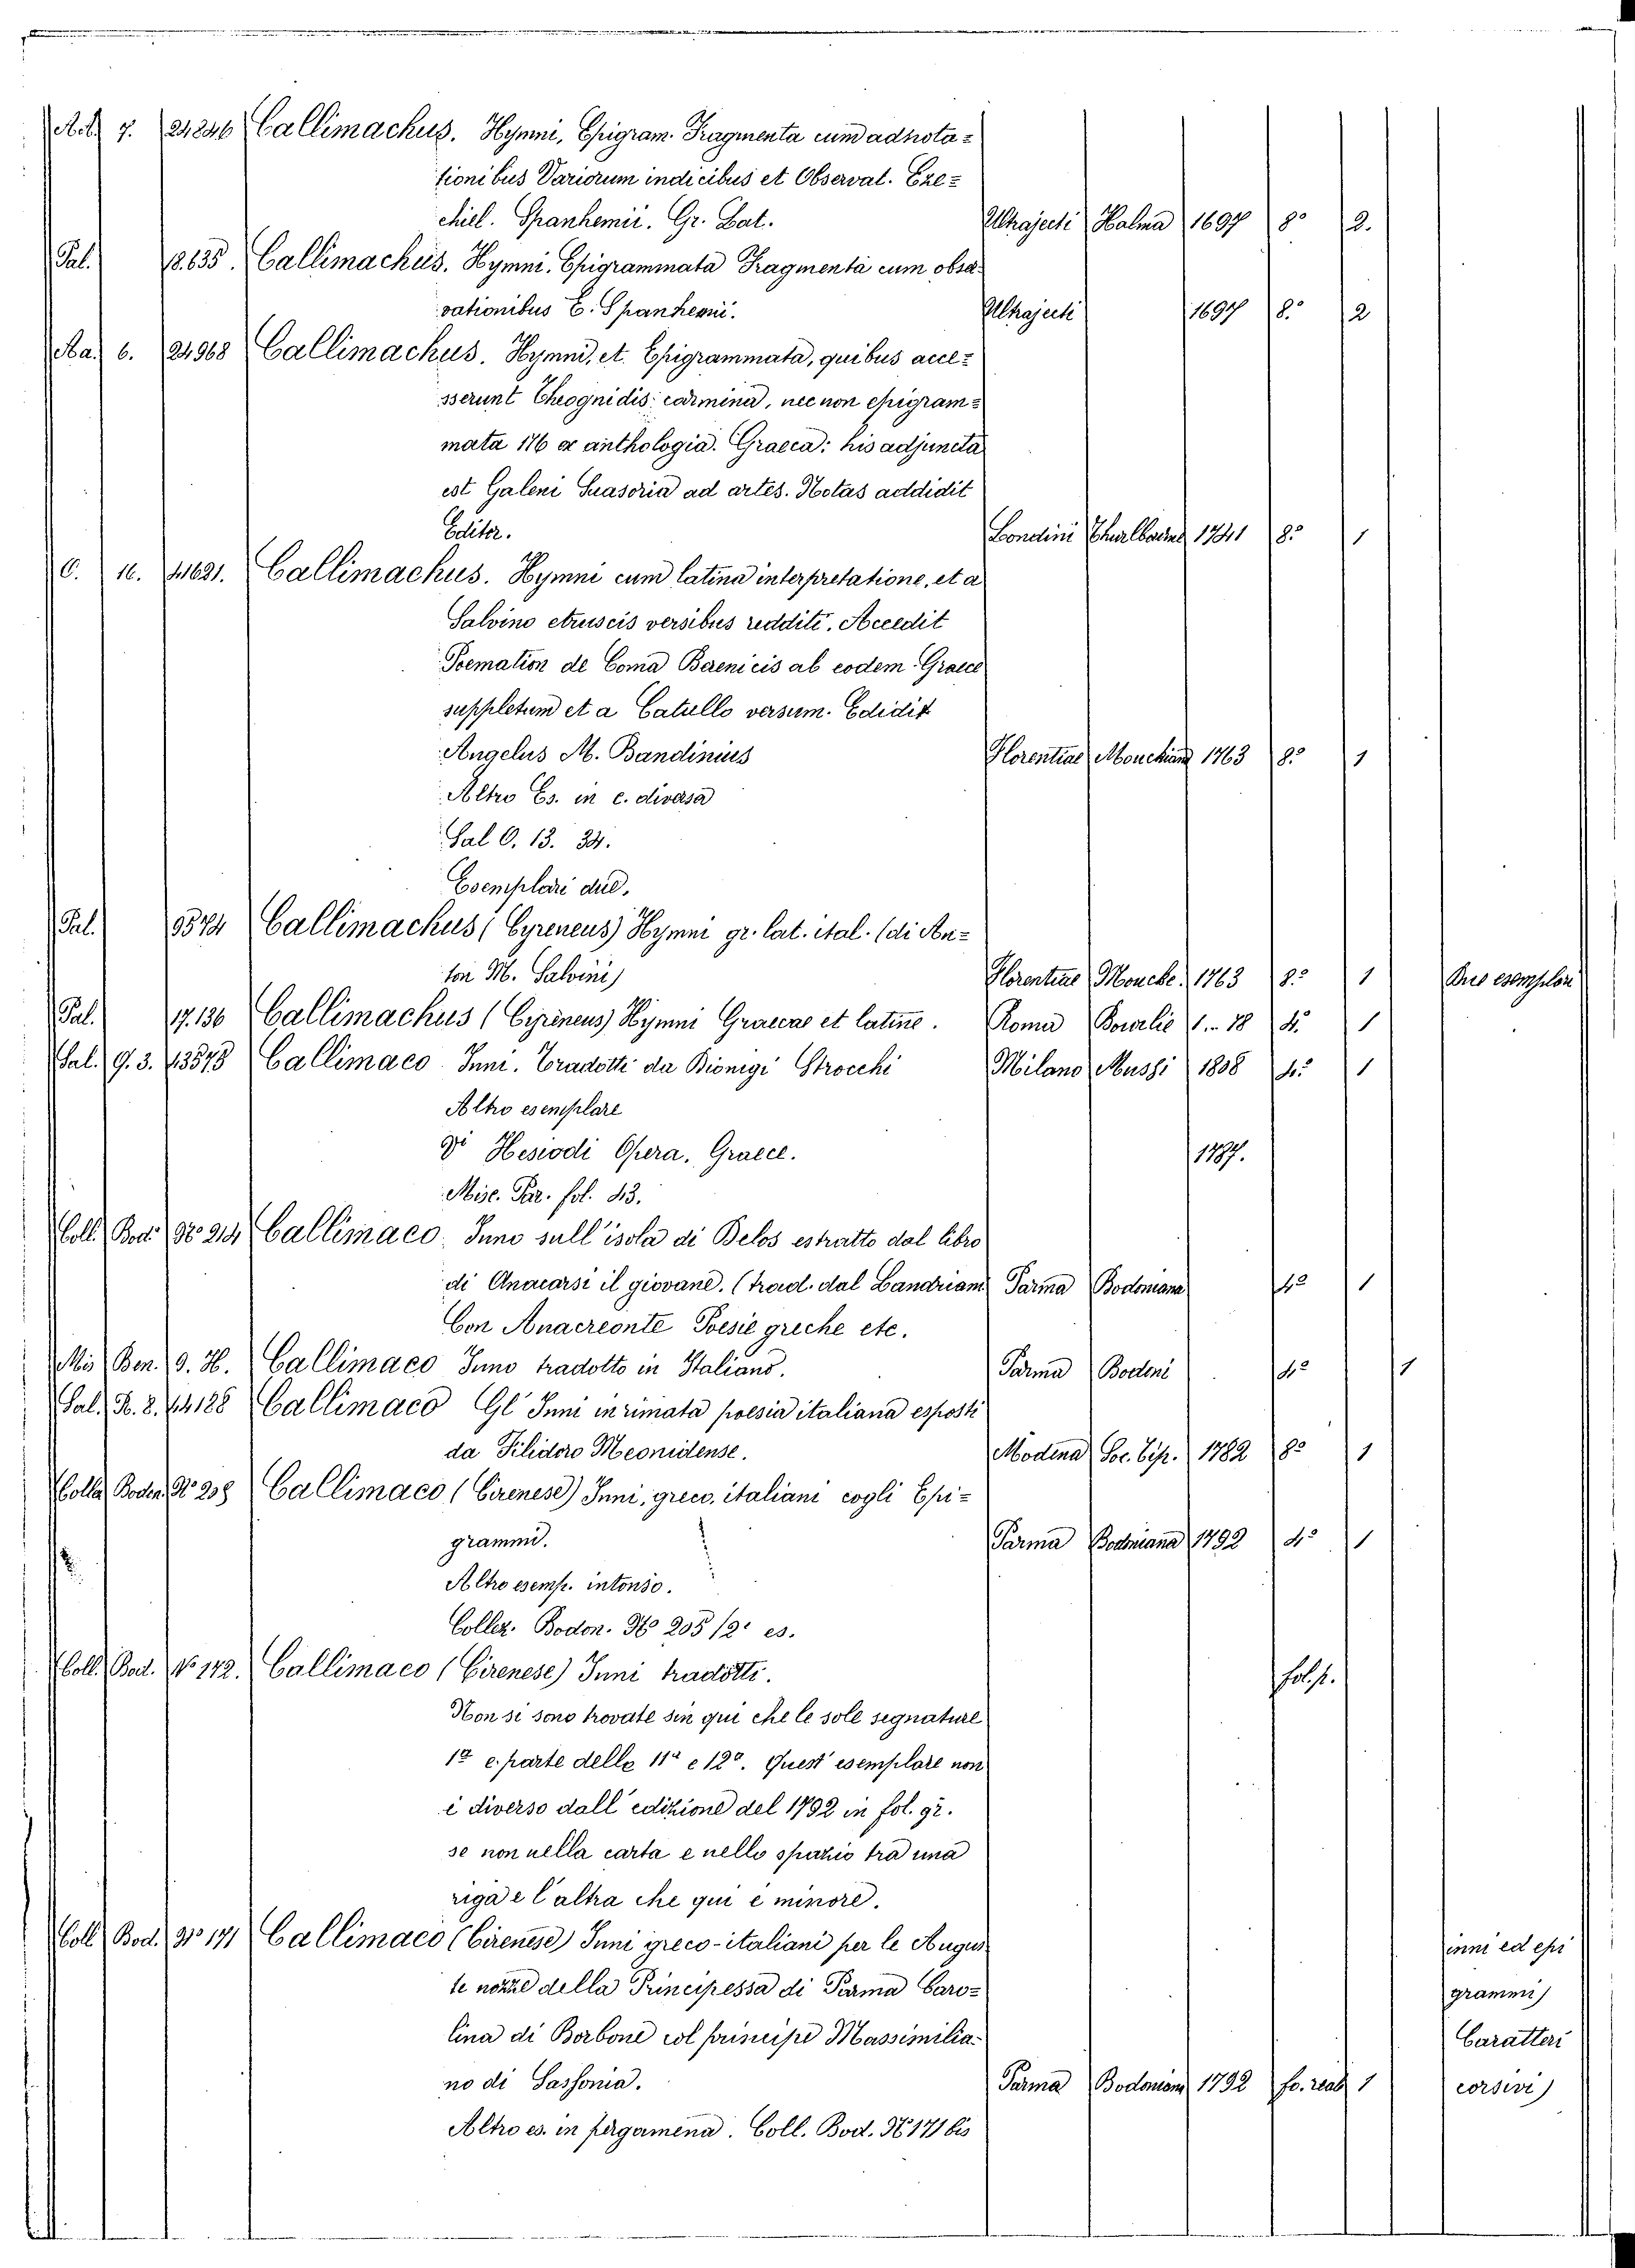 7. 24246 Callimachus. Hymni, Epigram. Fragmenta cum adnota=
tionibus Variorum indicibus et Observat. Eze=
chiel. Spanhemii. Gr. Lat. Ultrajecti Halma 1697 8° 2.
Pal. 18.635. Callimachus. Hymni. Epigrammata Fragmenta cum obser
vationibus E. Spanhemi. Ultrajecti 1697 8° 2
6. 24968 Callimachus. Hymni, et Epigrammata, quibus acce=
sserunt Theognidis carmina, nec non epigram=
mata 176 ex anthologia Graeca: his adjuncta
est Galeni Suasoria ad artes. Notas addidit
Editor. Londini 1741 8° 1
C. 16. 41621. Callimachus. Hymni cum latina interpretatione, et a
Salvino etruscis versibus redditi. Accedit
Poemation de Coma Berenicis ab eodem Graece
suppletum et a Catullo versum. Edidit
Angelus M. Bandinius Florentiae Mouckiana 1763 8° 1
Altro Es. in c. diversa
Sal C. 13. 34.
Esemplari due.
Pal. 9574 Callimachus (Cyreneus) Hymni gr. lat. ital. (di An=
ton M. Salvini) Florentiae Moucke. 1763 8° 1 Due esemplari
Pal. 17.136 Callimachus (Cyreneus) Hymni Graecae et latine. Roma 1..78 4° 1
Sal. Q. 3. 13573 Callimaco Inni. Tradotti da Dionigi Strocchi Milano Mussi 1808 4° 1
Altro esemplare
Vi Hesiodi Opera, Graece. 1787.
Misc. Par. fol. 43.
Coll. Bod. N° 214 Callimaco. Inno sull'isola di Delos estratto dal libro
di Anacarsi il giovane. (trad. dal Landriani Parma Bodoniana 4° 1
Con Anacreonte Poesie greche etc.
Mis Ben. 9. H. Callimaco Inno tradotto in Italiano. Parma Bodoni 4° 1
Sal. R. 2. 44188 Callimaco Gl' Inni in rimata poesia italiana esposti
da Filidoro Meonidense. Modena Soc. Tip. 1782 8° 1
Colle Boden. N° 208 Callimaco (Cirenese) Inni, greco, italiani cogli Epi=
grammi. Parma Bodoniana 1792 4° 1
Altro esemp. intonso.
Collez. Bodon. N° 205 /2° es.
Coll. Bod. N° 172. Callimaco (Cirenese) Inni tradotti. fol. p.
Non si sono trovate sin qui che le sole segnature
1° e parte delle 11° e 12°. Quest' esemplare non
è diverso dall' edizione del 1792 in fol. gr.
se non nella carta e nello spazio tra una
riga e l'altra che qui è minore.
Coll. Bod. N° 171 Callimaco (Cirenese) Inni greco-italiani per le Augus inni ed epi
te nozze della Principessa di Parma Caro= grammi)
lina di Borbone col principe Massimilia= Caratteri
no di Sassonia. Parma Bodoniana 1792 fo. reale 1 corsivi)
Altro es. in pergamena. Coll. Bod. N° 171 bis